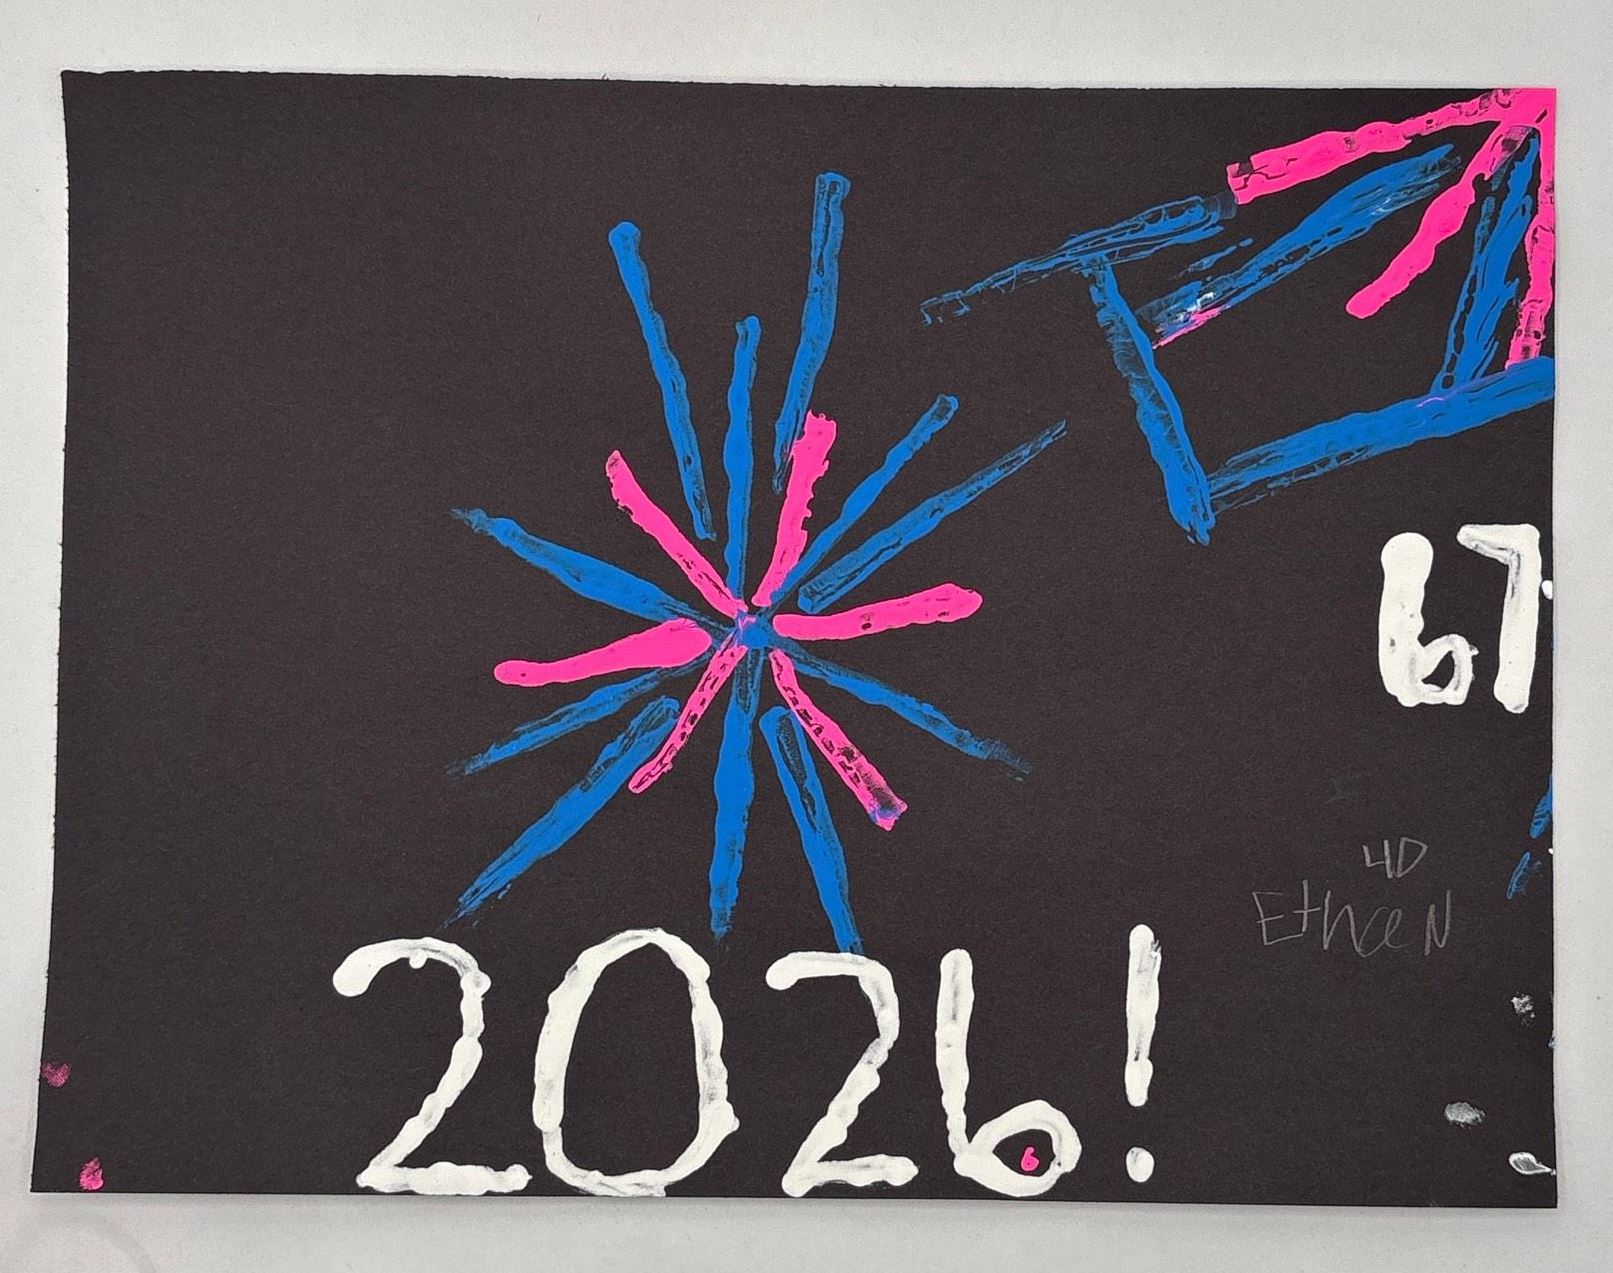 67
4D
EthaN
2026!
6